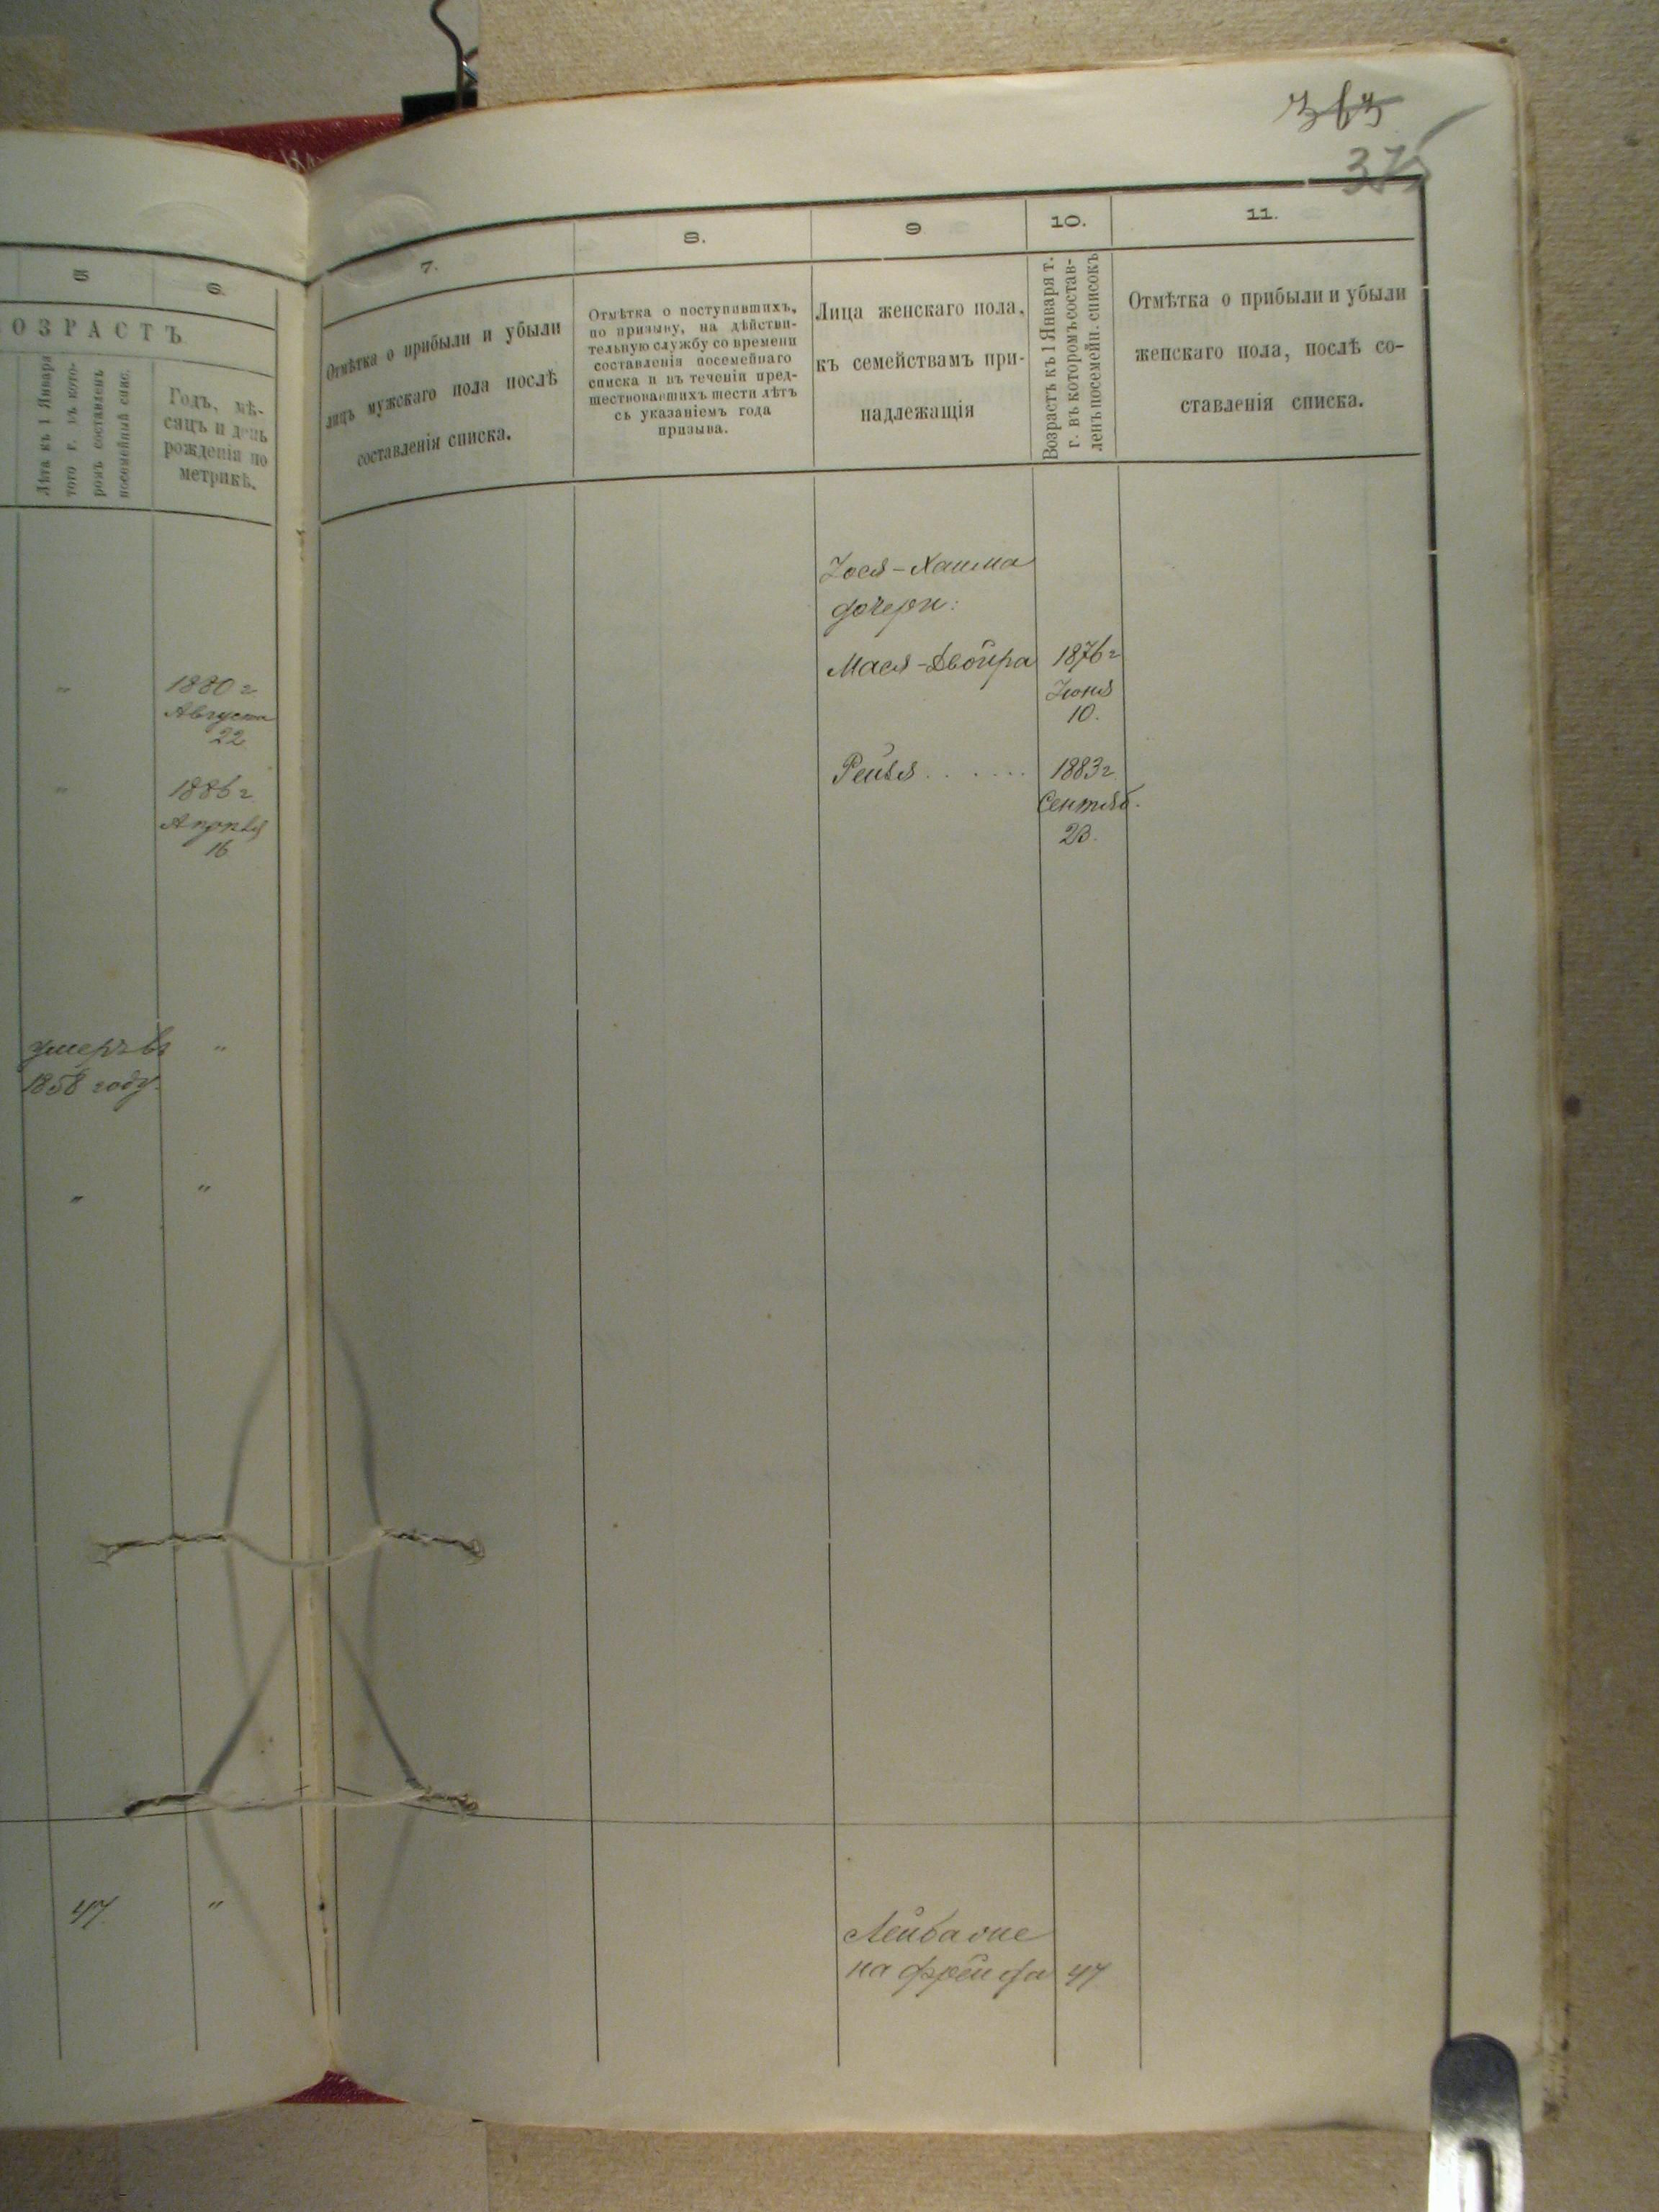 363
375
5
6.
ОЗРАСТЪ
Лѣта къ 1 Января
того г. въ кото-
ромъ составленъ
посемейный спис.
Годъ, мѣ-
сяцъ и день
рожденія по
метрикѣ.
"
1880 г
Августа
22
"
1886 г
Апрѣля
16
умеръ въ
1858 году.
"
"
"
47
"
7.
8.
9
10.
11.
Отмѣтка о прибыли и убыли
лицъ мужскаго пола послѣ
составленія списка.
Отмѣтка о поступившихъ,
по призыву, на дѣйстви-
тельную службу со времени
составленія посемейнаго
списка и въ теченіи пред-
шествовавшихъ шести лѣтъ
съ указаніемъ года
призыва.
Лица женскаго пола,
къ семействамъ при-
надлежащія
Возрастъ къ 1 Января т.
г. въ которомъ состав-
ленъ посемейн. списокъ
Отмѣтка о прибыли и убыли
женскаго пола, послѣ со-
ставленія списка.
дочери:
Мася-Двойра 1876 г
Іюня
10.
1883 г.
Сентяб.
23.
Лейба
на Фрейда 47